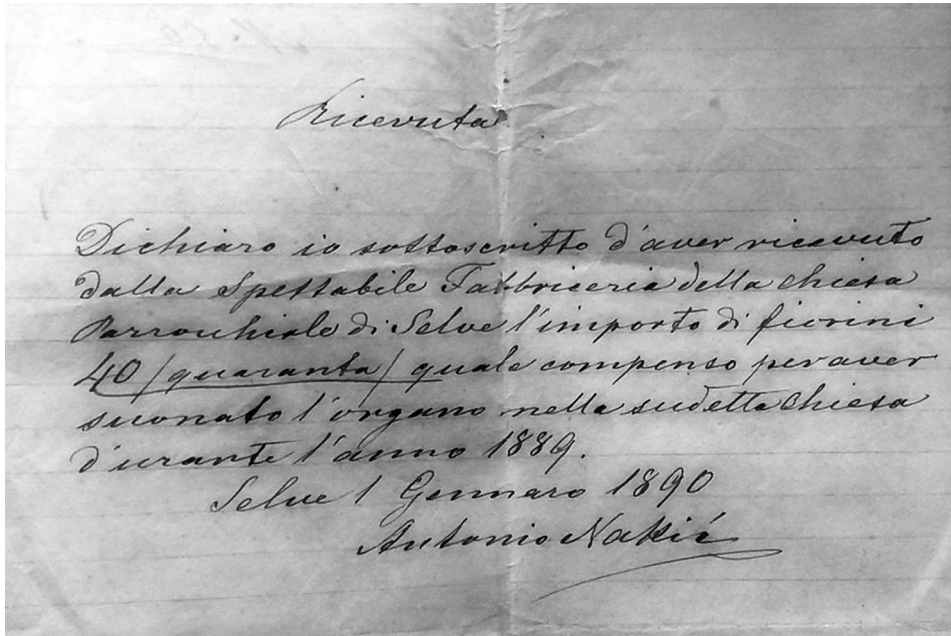 Ricevuta
Dichiaro io sottoscritto d'aver ricevuto
dalla Spettabile Fabbriceria della Chiesa
Parrochiale di Selve l'importo di fiorini
40 /quaranta/ quale compenso per aver
suonato l'organo nella sudetta Chiesa
d'urante l'anno 1889.
Selve 1 Gennaro 1890
Antonio Nakić